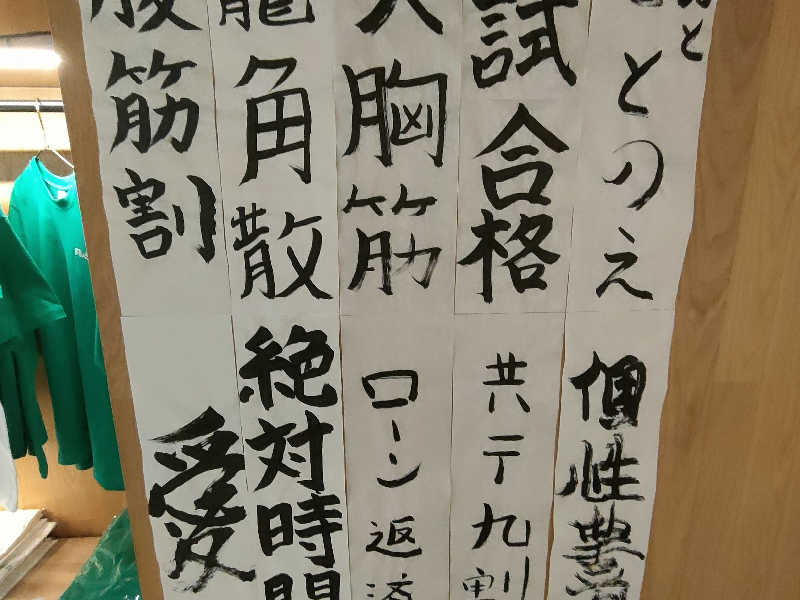 と
とのえ
試合格
大胸筋
龍角散
腹筋割
個性豊
共テ九割
ローン返済
絶対時間
愛